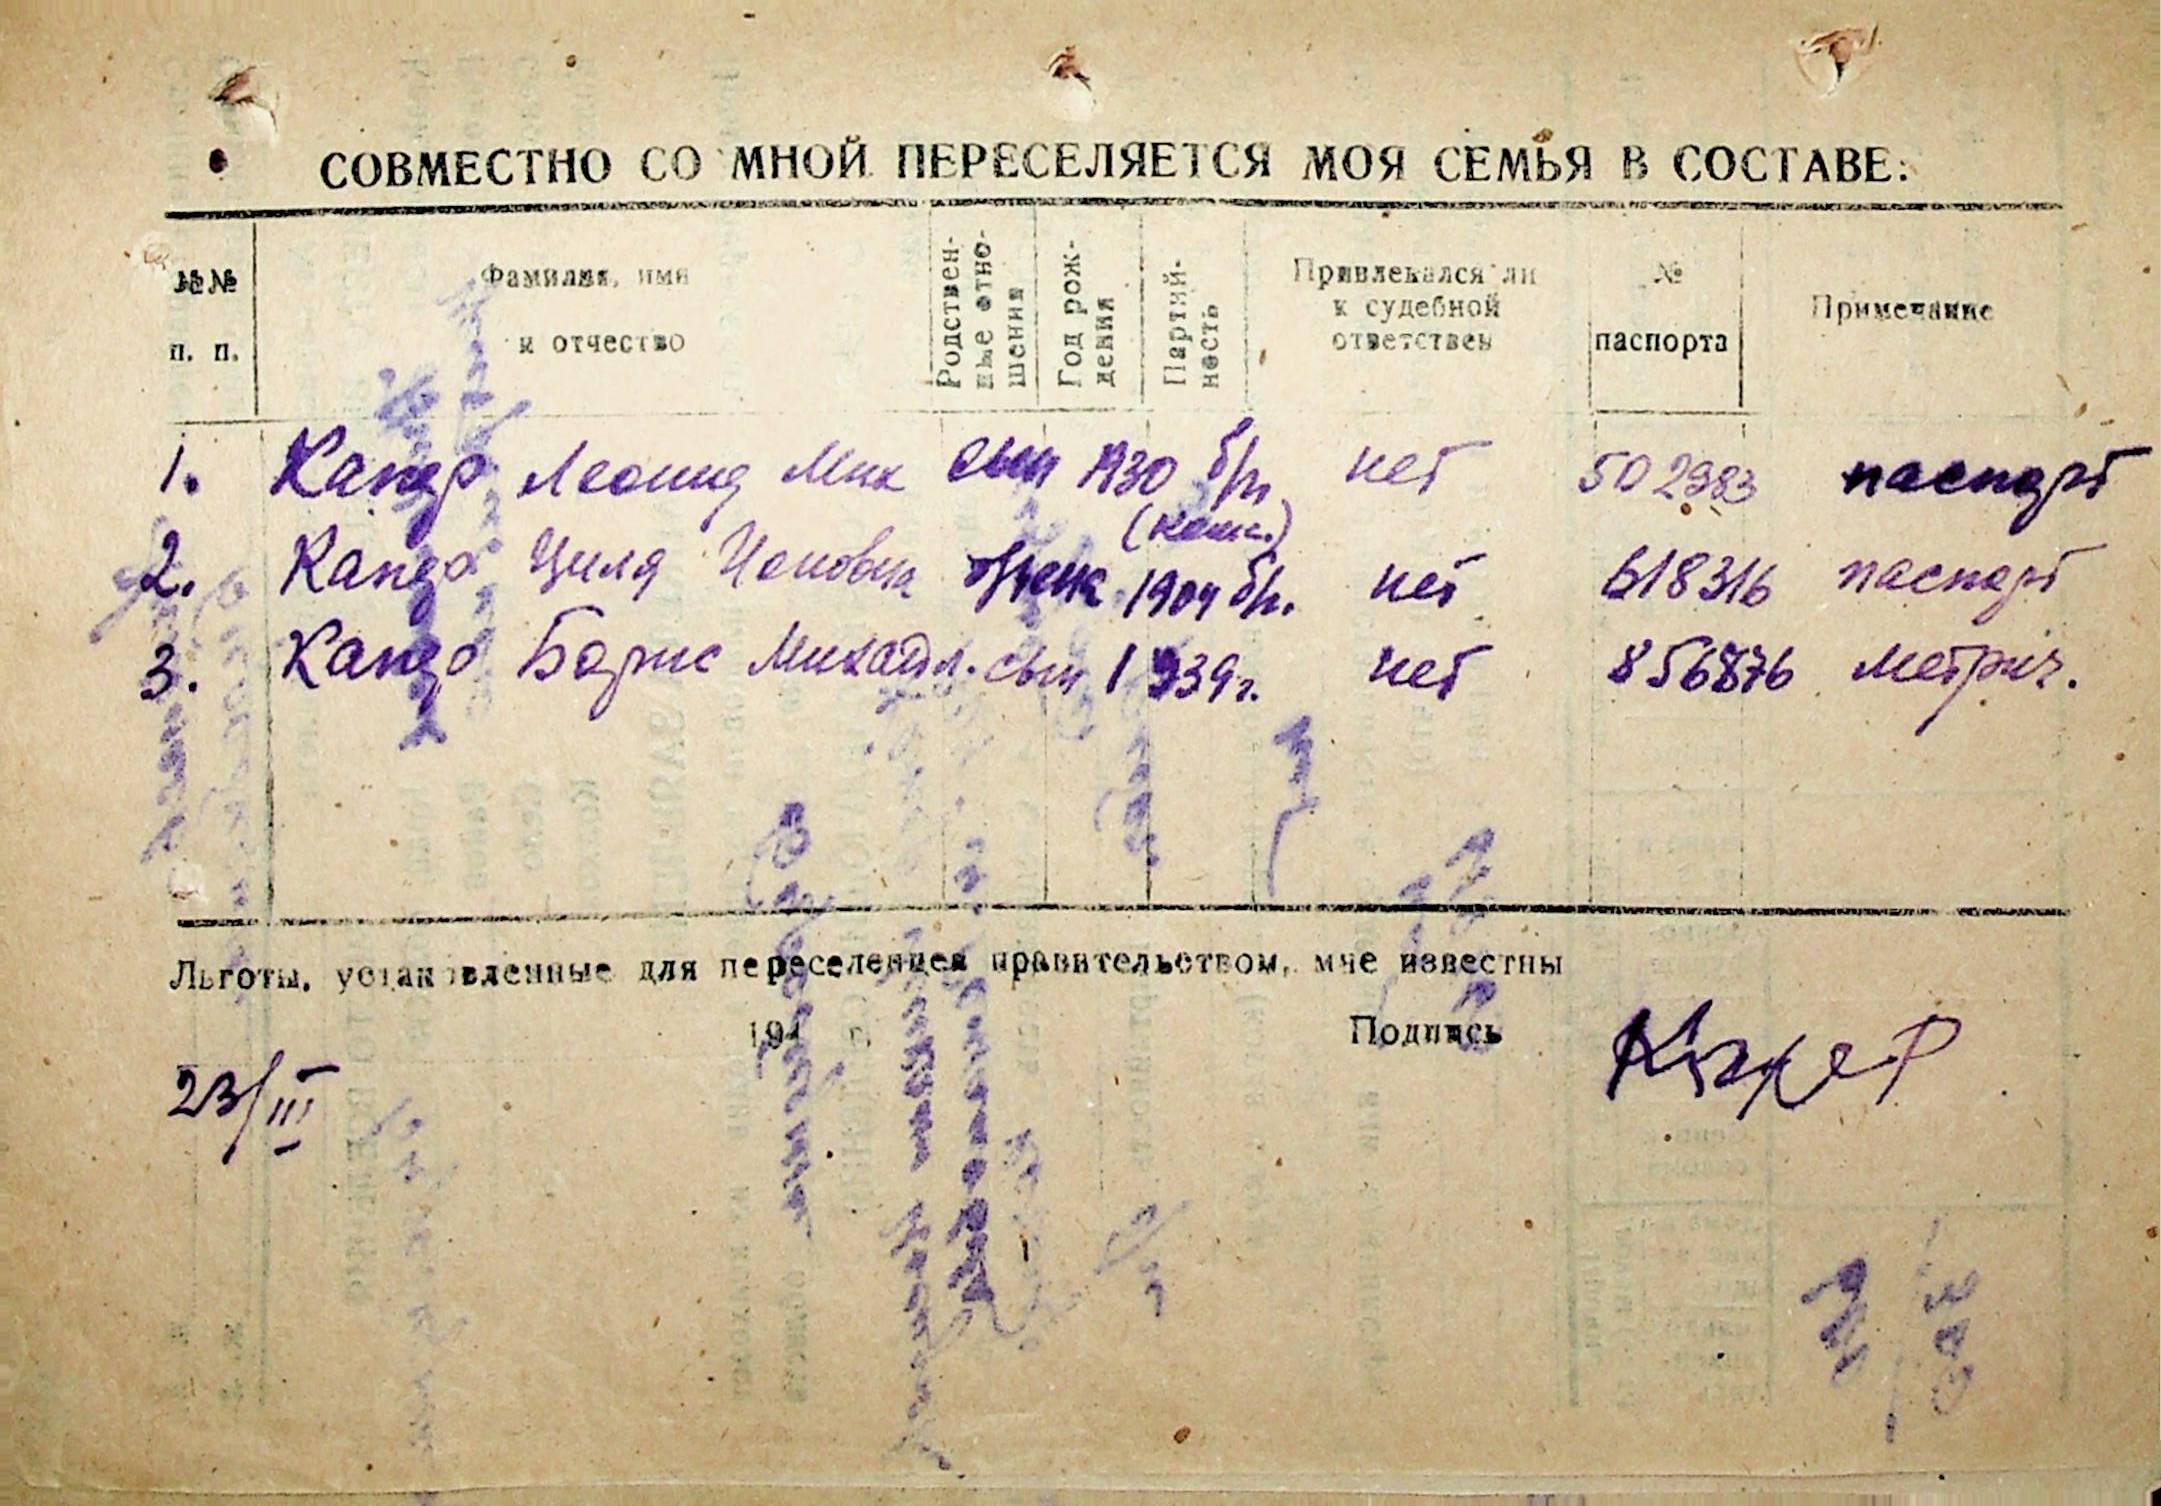 СОВМЕСТНО СО МНОЙ ПЕРЕСЕЛЯЕТСЯ МОЯ СЕМЬЯ В СОСТАВЕ:
№№ п. п.
Фамилия, имя и отчество
Родствен- ные отно- шения
Год рож- дения
Партий- ность
Привлекался ли к судебной ответствен
№ паспорта
Примечание
1. Леонид Мих сын 1930 б/п нет 502983 паспорт
2. Циля 1904 б/п. нет 618316 паспорт
3. Борис Михайл. сын 1939 г. нет 856876 метрич.
Льготы, установленные для переселенцев правительством, мне известны
194 г.
Подпись
23/III